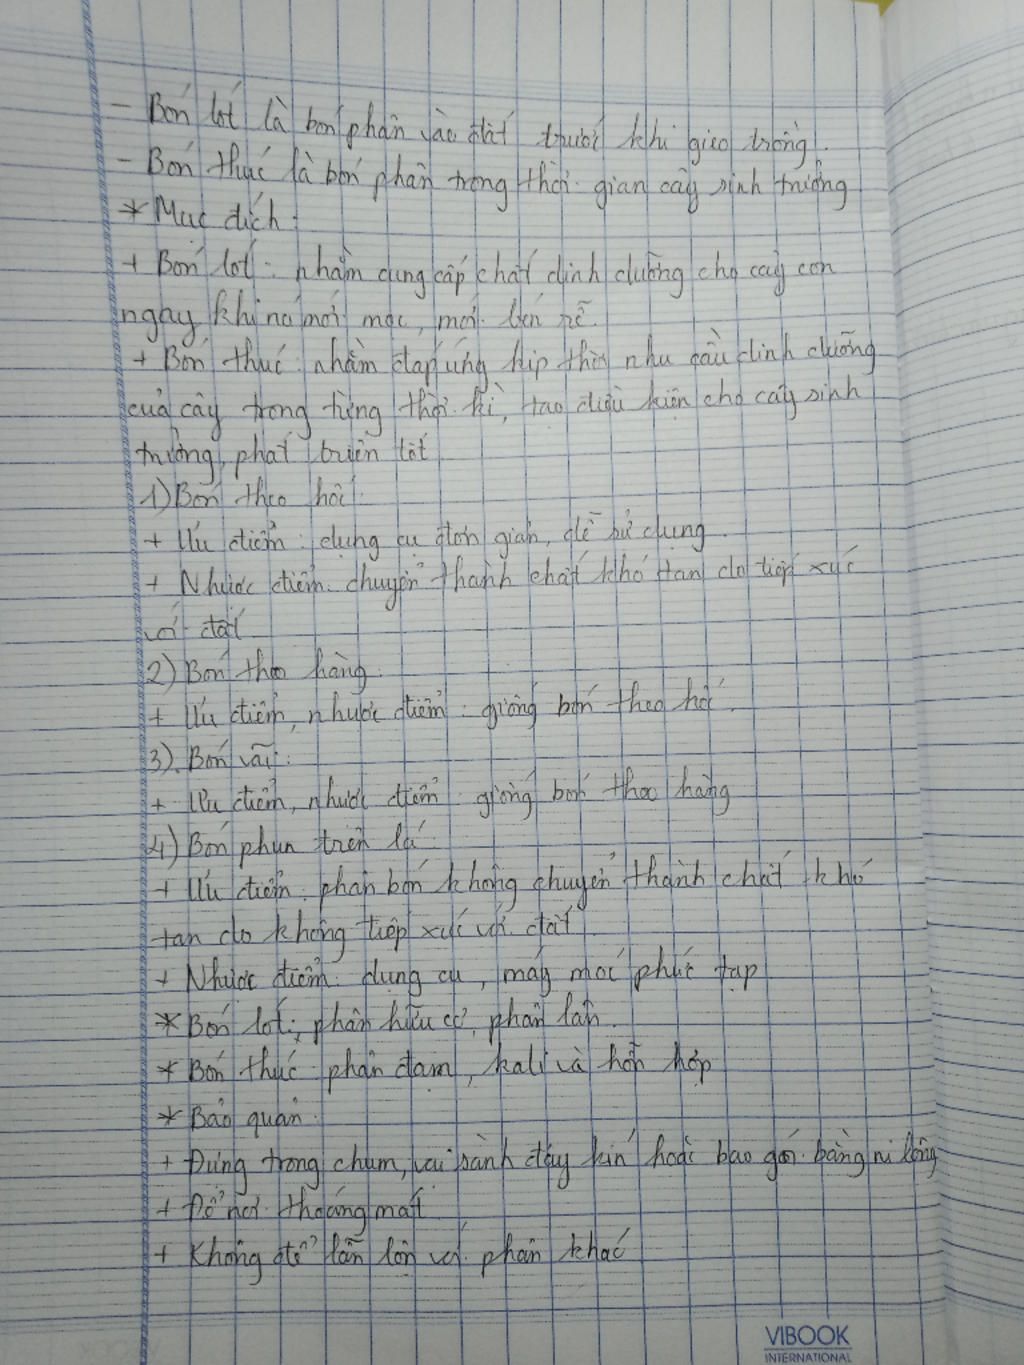 - Bón lót là bón phân vào đất trước khi gieo trồng.
- Bón thúc là bón phân trong thời gian cây sinh trưởng
* Mục đích:
+ Bón lót: nhằm cung cấp chất dinh dưỡng cho cây con
ngay khi nó mới mọc, mới bén rễ.
+ Bón thúc: nhằm đáp ứng kịp thời nhu cầu dinh dưỡng
của cây trong từng thời kì, tạo điều kiện cho cây sinh
trưởng, phát triển tốt
1) Bón theo hốc:
+ Ưu điểm: dụng cụ đơn giản, dễ sử dụng
+ Nhược điểm: chuyển thành chất khó tan do tiếp xúc
với đất
2) Bón theo hàng:
+ Ưu điểm, nhược điểm: giống bón theo hốc.
3) Bón vãi:
+ Ưu điểm, nhược điểm: giống bón theo hàng
4) Bón phun trên lá:
+ Ưu điểm: phân bón không chuyển thành chất khó
tan do không tiếp xúc với đất
+ Nhược điểm: dụng cụ, máy móc phức tạp
* Bón lót: phân hữu cơ, phân lân.
* Bón thúc: phân đạm, kali và hỗn hợp
* Bảo quản:
+ Đựng trong chum, vại sành đậy kín hoặc bao gói bằng ni lông
+ Để nơi thoáng mát
+ Không để lẫn lộn với phân khác
VIBOOK
INTERNATIONAL